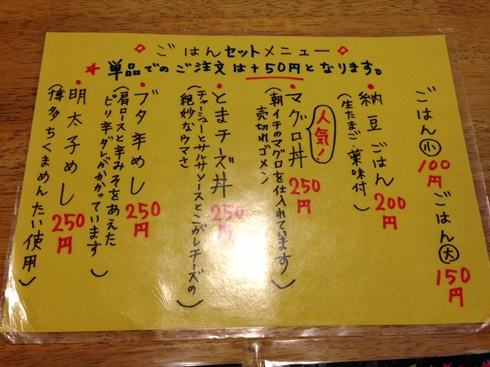 ◇ごはんセットメニュー◇
★単品でのご注文は+50円となります。
ごはん(小)100円 ごはん(大)150円
・納豆ごはん 200円
(生たまご・薬味付)
人気!
・マグロ丼 250円
(朝イチのマグロを仕入れています)
売切れゴメン
・とまチーズ丼 250円
(チャーシューとサルサソースとこがしチーズの
絶妙なウマさ)
・ブタ辛めし 250円
(肩ロースと辛みそをあえた
ピリ辛ダレがかかっています)
・明太子めし 250円
(博多ちくまめんたい使用)